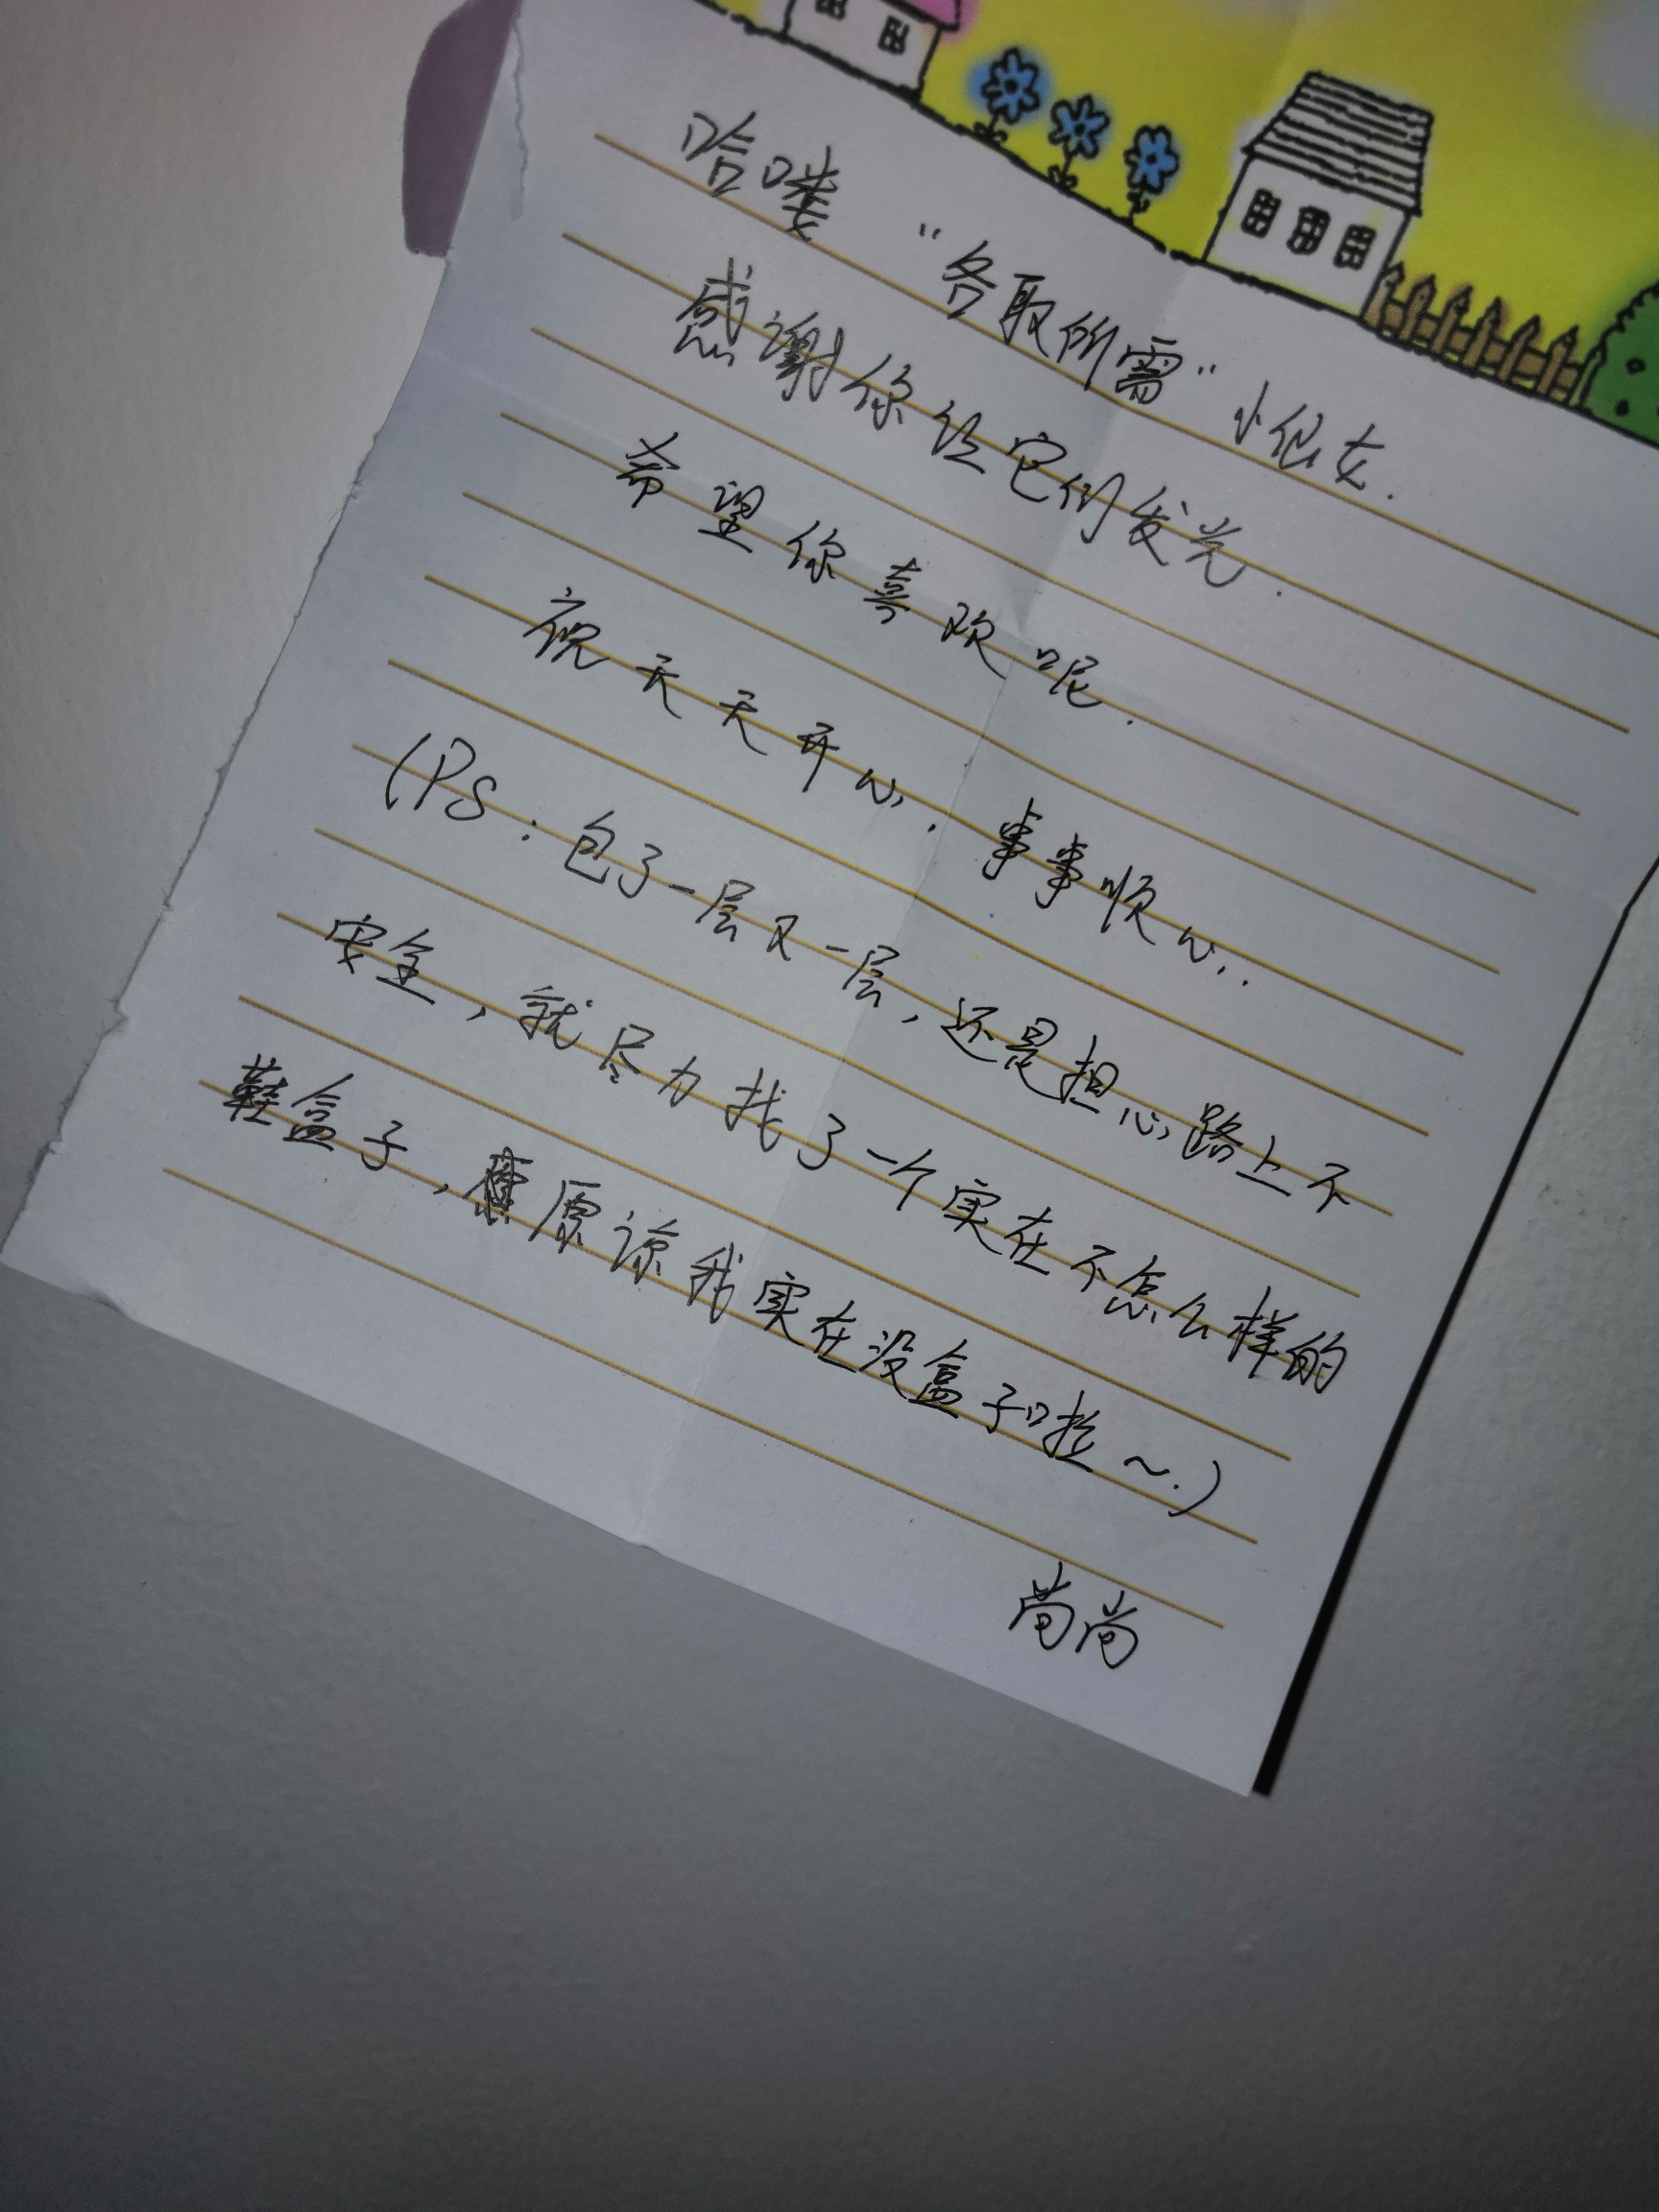 哈喽 “各取所需”小仙女.
感谢你让它们发光.
希望你喜欢呢.
祝天天开心. 事事顺心..
(PS:包了一层又一层,还是担心路上不
安全,就尽力找了一个实在不怎么样的
鞋盒子,原谅我实在没盒子啦~.)
尚尚